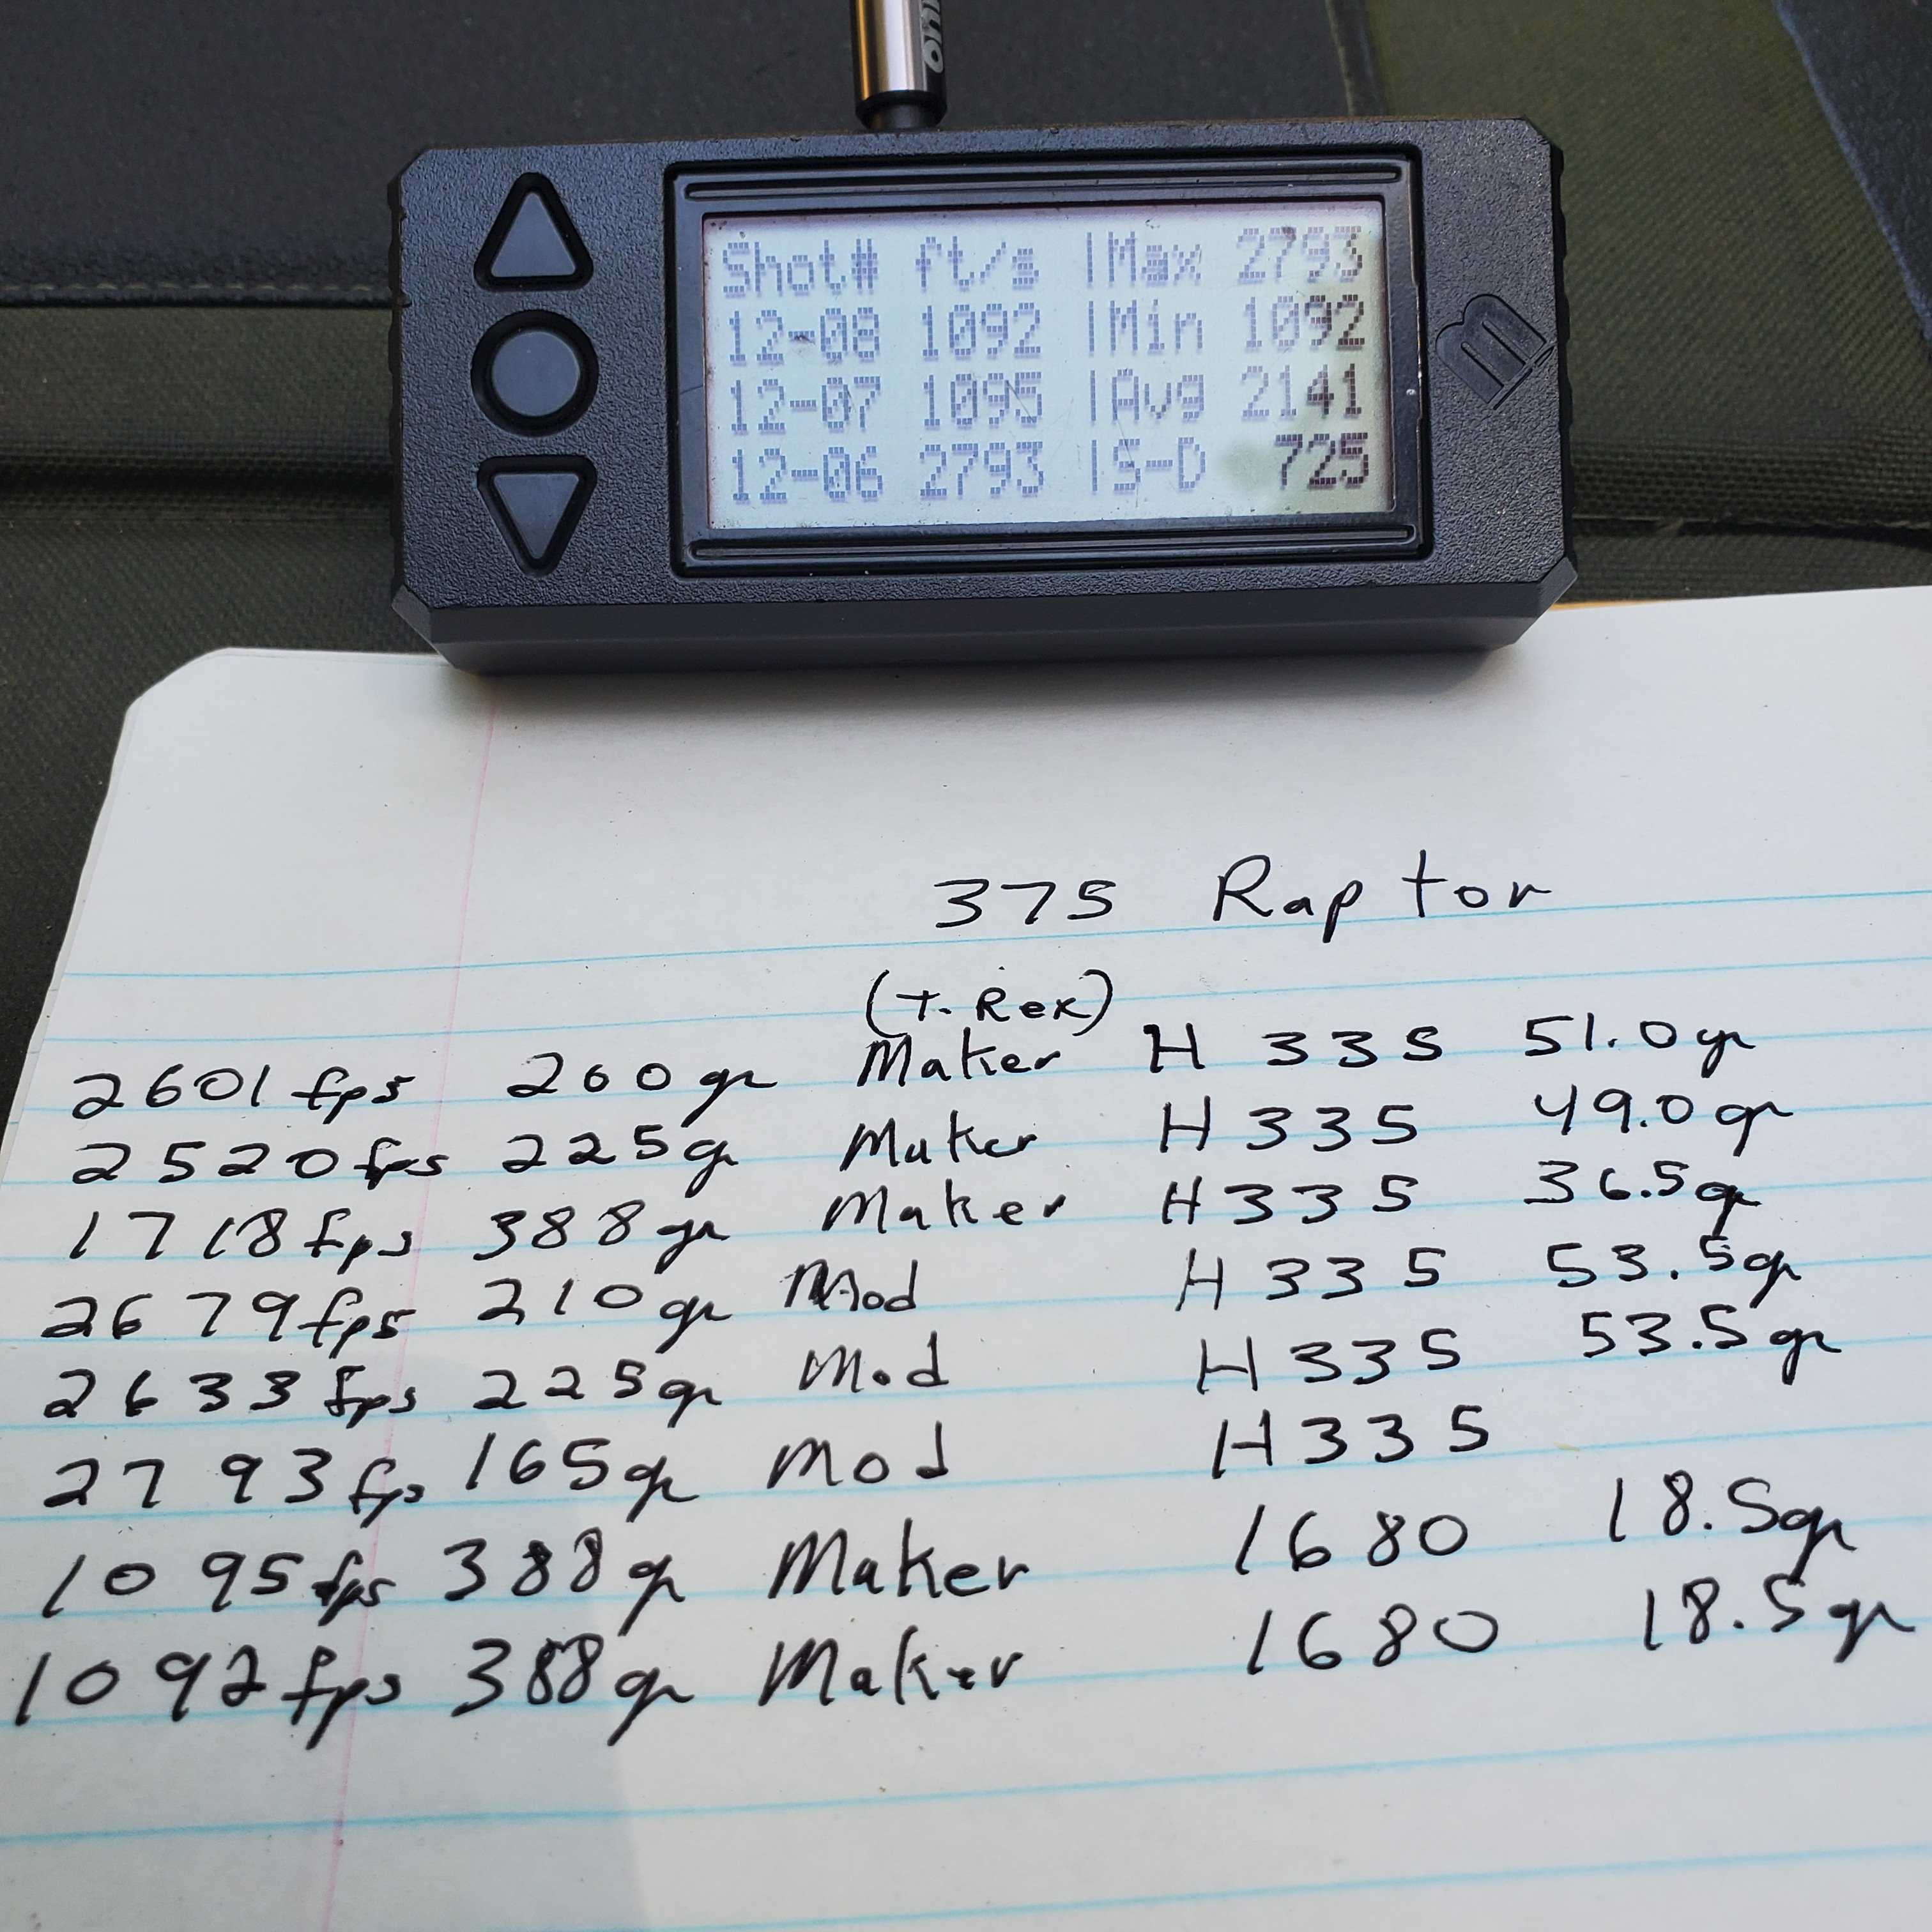 Shot# ft/s |Max 2793
12-08 1092 |Min 1092
12-07 1095 |Avg 2141
12-06 2793 |S-D 725
375 Raptor
(T. Rex)
2601 fps 260 gr Maker H 335 51.0 gr
2520 fps 225 gr Maker H 335 49.0 gr
1718 fps 388 gr Maker H 335 36.5 gr
2679 fps 210 gr Mod H 335 53.5 gr
2633 fps 225 gr Mod H 335 53.5 gr
2793 fps 165 gr Mod H 335
1095 fps 388 gr Maker 1680 18.5 gr
1092 fps 388 gr Maker 1680 18.5 gr